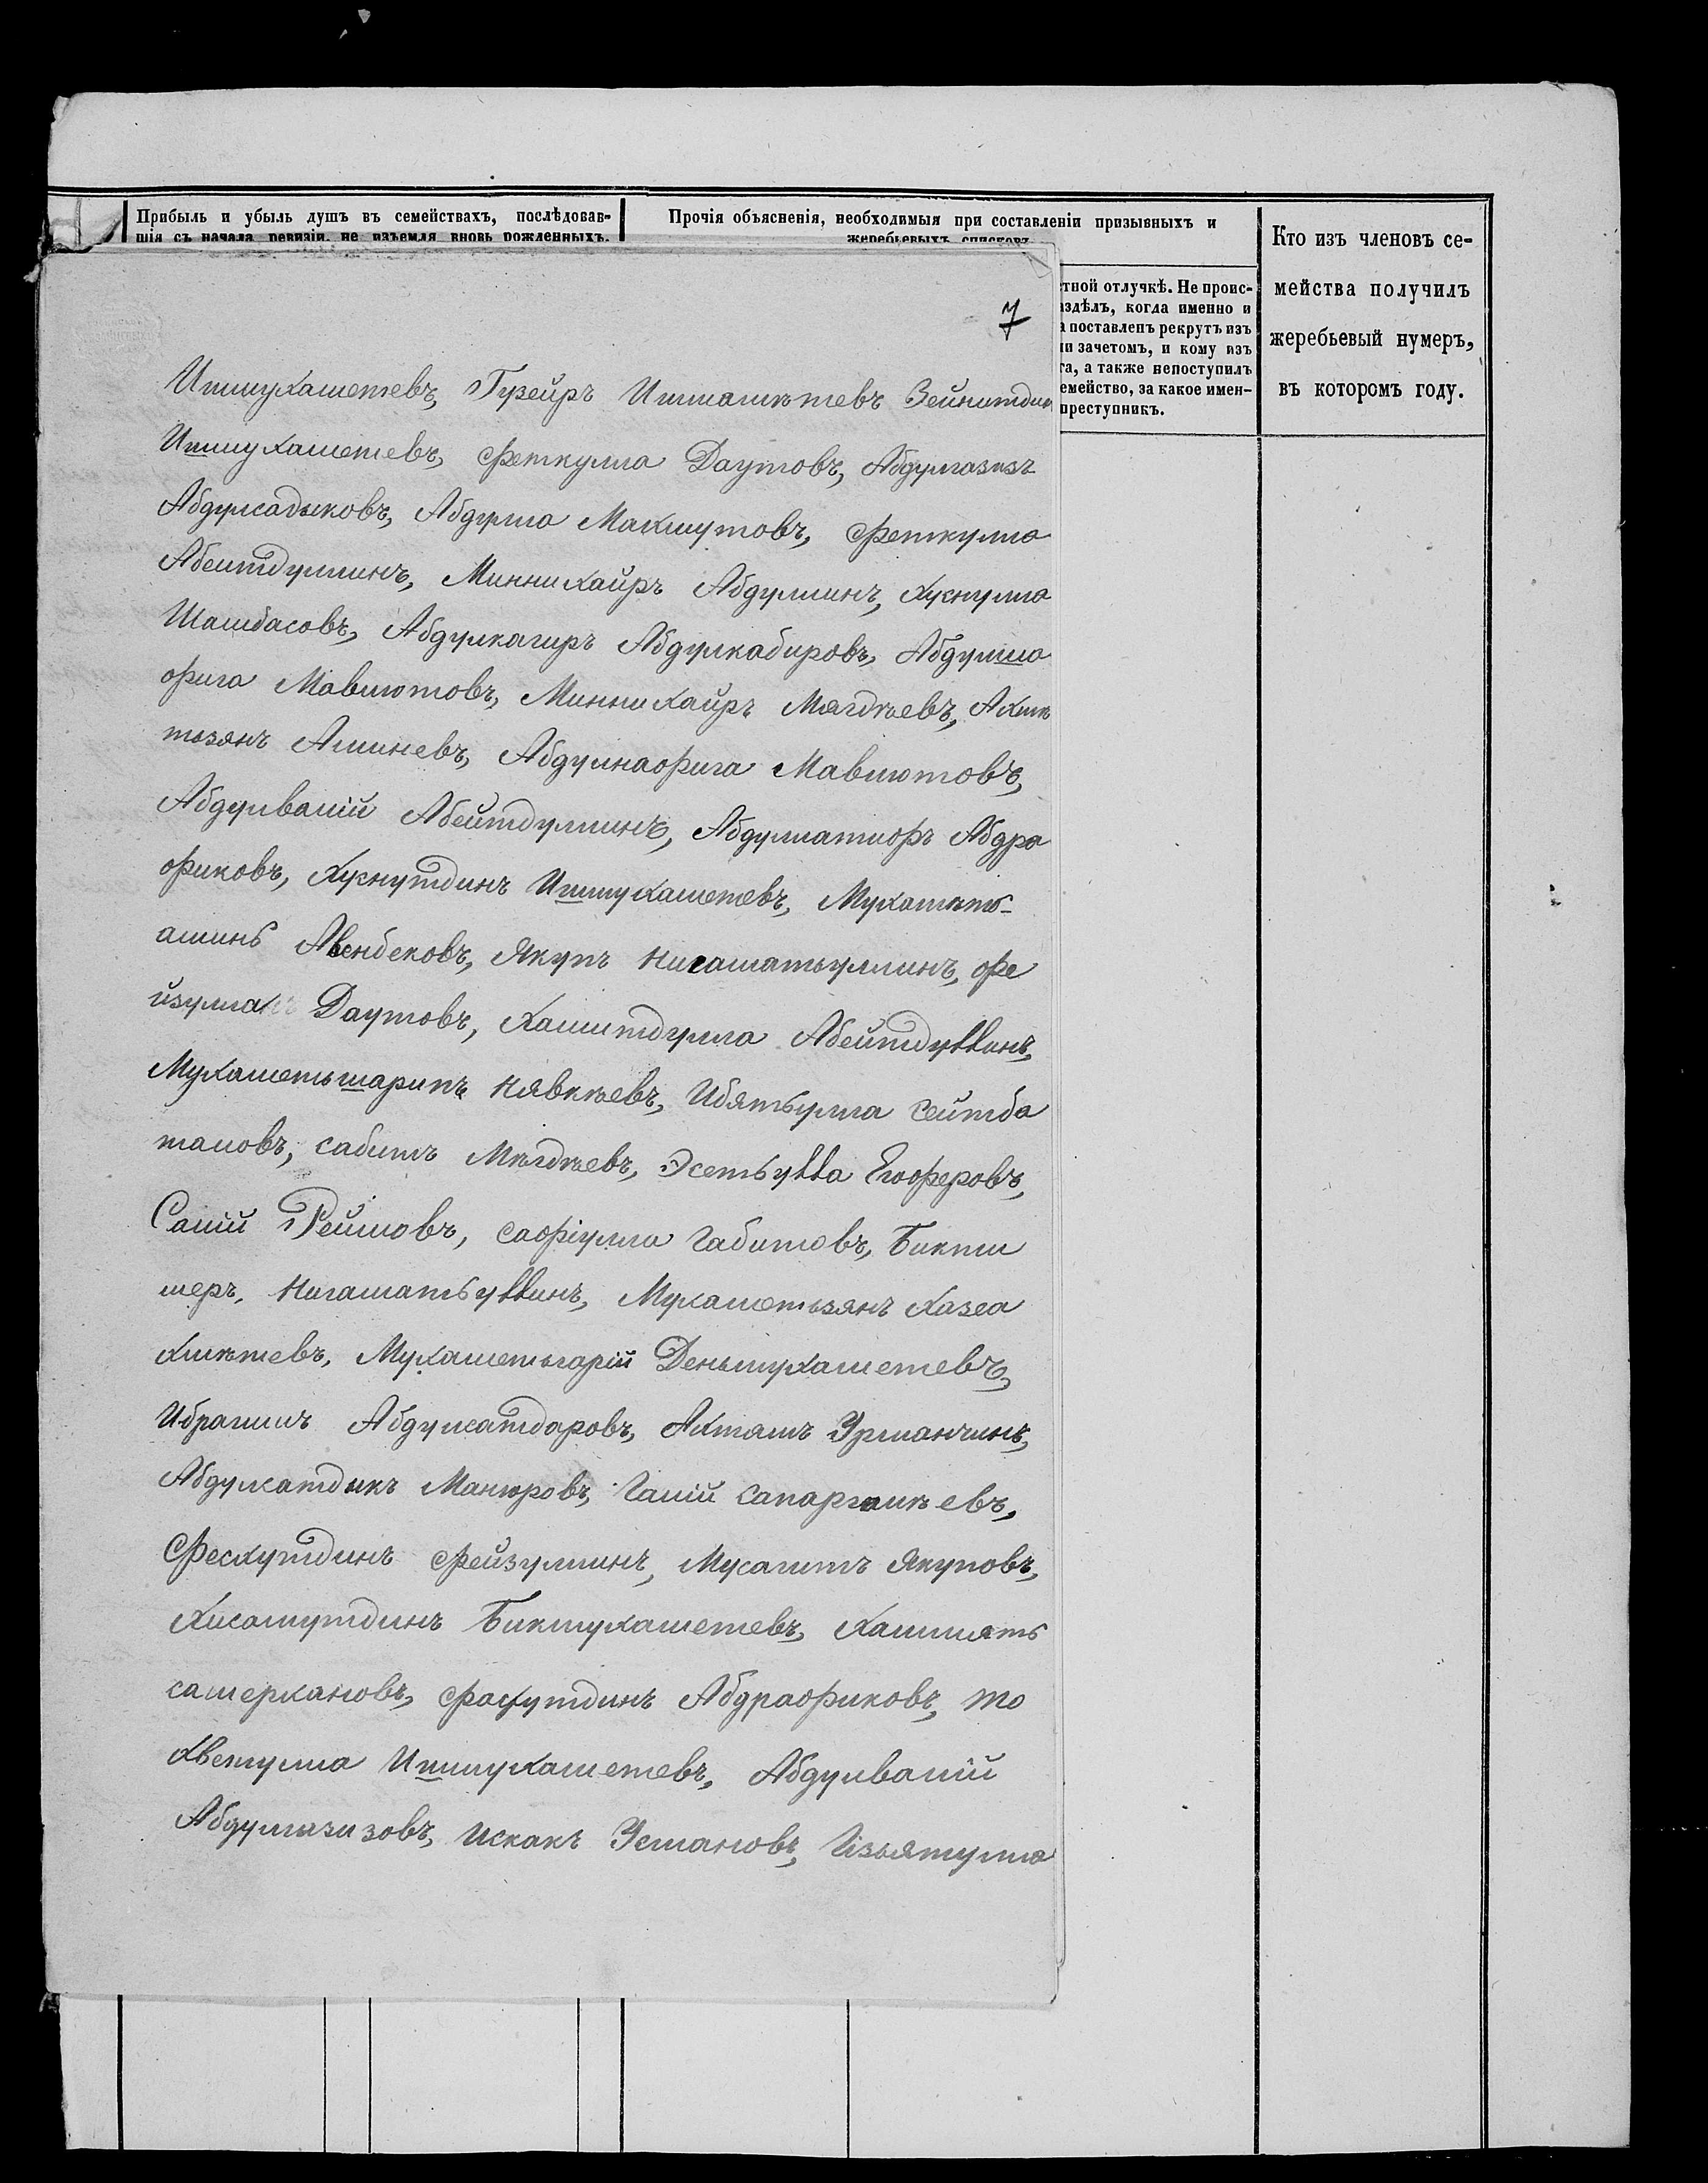 Прибыль и убыль душъ въ семействахъ, послѣдовав-
шія съ начала ревизіи, не изъемля вновь рожденныхъ.
Прочія объясненія, необходимыя при составленіи призывныхъ и
жеребьевыхъ списковъ
тной отлучкѣ. Не проис-
здѣлъ, когда именно и
а поставленъ рекрутъ изъ
и зачетомъ, и кому изъ
га, а также непоступилъ
емейство, за какое имен-
преступникъ.
Кто изъ членовъ се-
мейства получилъ
жеребьевый нумеръ,
въ которомъ году.
7
Ишмухаметевъ, Гузейръ Ишмаметевъ Зейнитдин
Ишмухаметевъ, Феткулла Даутовъ, Абдулгазизъ
Абдулсадыковъ, Абдулла Максутовъ, Феткулла
Абеитдуллинъ, Миннихайръ Абдуллинъ, Хуснулла
Шамбасовъ, Абдулкагиръ Абдулкабировъ, Абдулна
фига Мавлютовъ, Миннихайръ Мягдѣевъ, Ахмѣ
тзянъ Аминевъ, Абдулнафига Мавлютовъ,
Абдулвалій Абейтдуллинъ, Абдуллатифъ Абдра
фиковъ, Хуснутдинъ Ишмухаметевъ, Мухамѣтъ-
аминь Авенбековъ, Якупъ Нигаматьуллинъ, Фе
йзулла Даутовъ, Хамитдулла Абейтдуллинъ,
Мухаметьшарипъ Нявкѣевъ, Ибятьулла Сеитба
таловъ, Сабитъ Мѣгдѣевъ, Эсетьулла Ягоферовъ,
Салій Реимовъ, Сафіулла Габитовъ, Бикти
меръ, Нигаматьуллинъ, Мухаметьзянъ Хазеа
хмѣтевъ, Мухаметьгарій Деньмухаметевъ,
Ибрагимъ Абдулсатдаровъ, Ахтямъ Урманчинъ,
Абдулсатдикъ Манюровъ, Галій Сапаргалѣевъ,
Фесхутдинъ Фейзуллинъ, Мусагитъ Якуповъ,
Хисамутдинъ Бикмухаметевъ, Хаммять
Самерхановъ, Фахутдинъ Абдрафиковъ, То
хветулла Ишмухаметевъ, Абдулвалій
Абдулгазизовъ, Искакъ Усмановъ, Гізьятулла